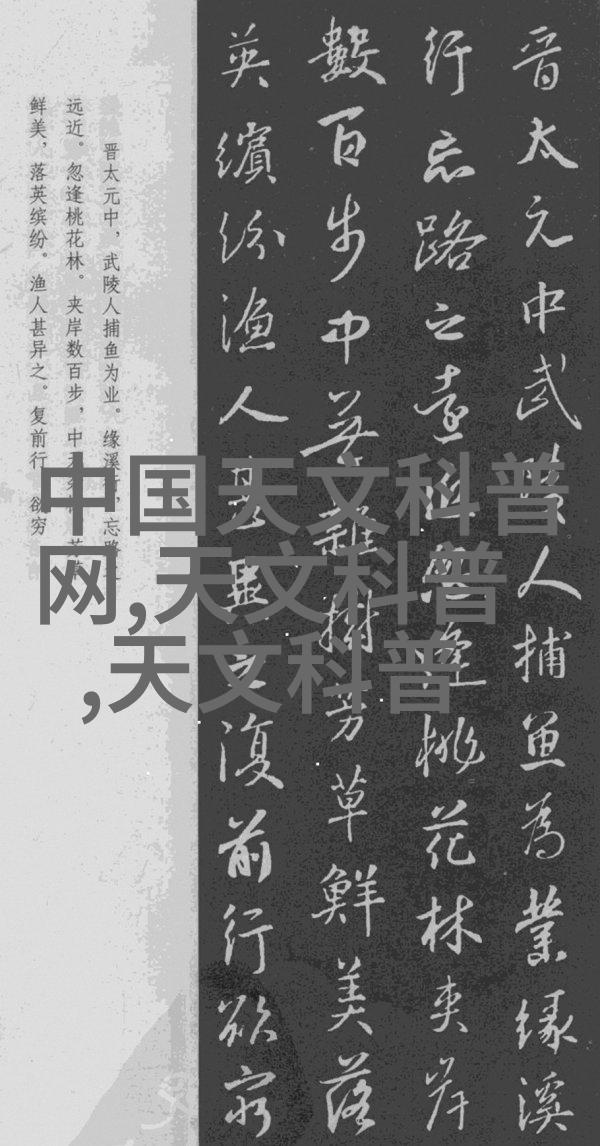 晋太元中武陵人捕鱼为業缘溪
行忘路之遠近忽逢桃花林夹岸
數百步中無雜樹芳草鮮美落
英繽纷渔人甚異之復前行欲窮
晋太元中，武陵人捕鱼为业。缘溪行，忘路之
远近。忽逢桃花林。夹岸数百步，中
鲜美，落英缤纷。渔人甚异之。复前行 欲穷
中国天文科普
网,天文科普
,天文科普